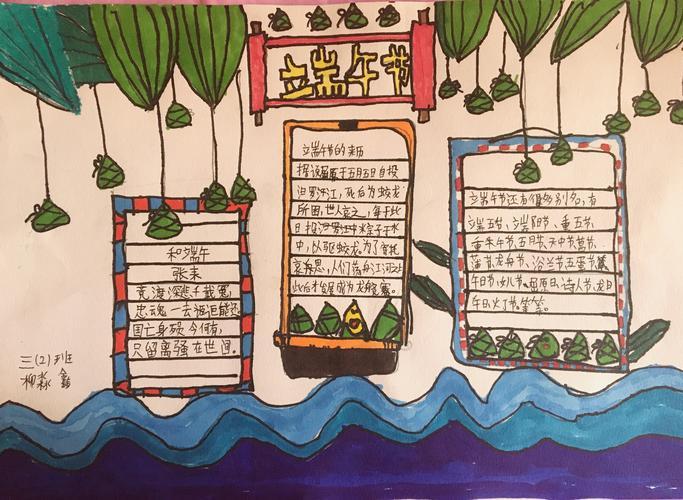 立端午节
和端午
张耒
竞渡深悲千载冤,
忠魂一去讵能还
国亡身殒今何有,
只留离骚在世间。
端午节的来历
据说屈原于五月五日自投
汨罗江,死后为蛟龙
所困,世人哀之,每于此
日投
中,以驱蛟龙。为了寄托
哀思,人们荡舟江河之上
此后才发展成为龙舟竞赛。
端午节还有很多别名,有
端五节、端阳节、重五节、
重午节、五月节、天中节
龙舟节、浴兰节、
午日节、女儿节、诗人节、龙日
午日、灯节。等等。
三(2)班
柳淼鑫